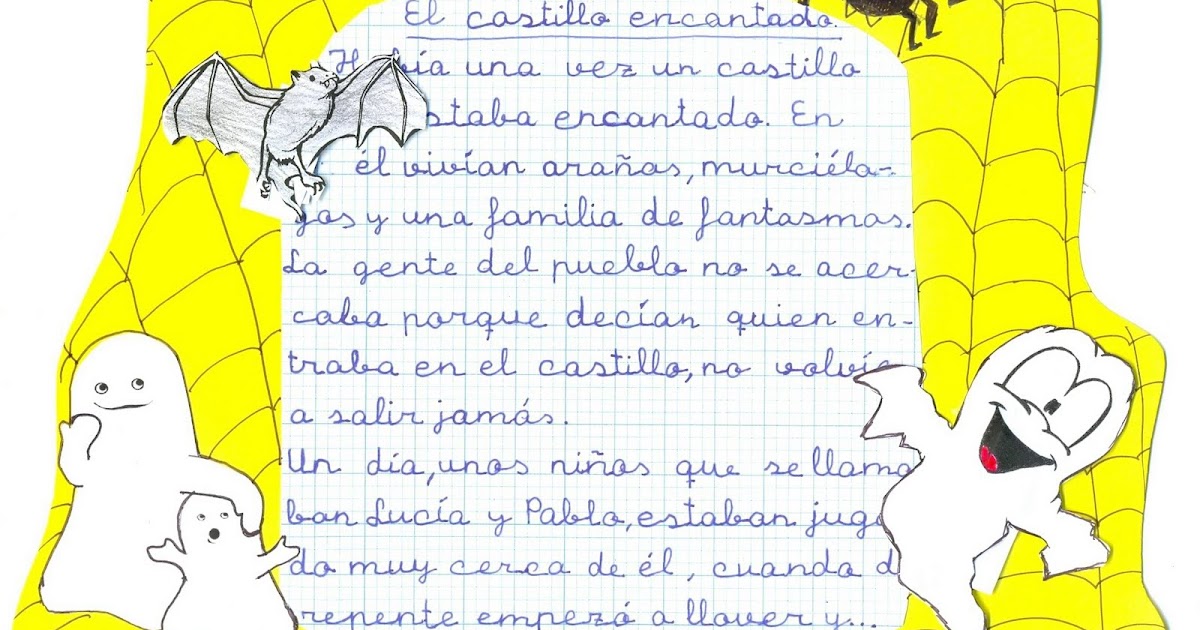 El castillo encantado.
Había una vez un castillo
staba encantado. En
él vivían arañas, murciéla-
gos y una familia de fantasmas.
La gente del pueblo no se acer-
caba porque decían quien en-
traba en el castillo, no volvía
a salir jamás.
Un día, unos niños que se llama
ban Lucía y Pablo, estaban jug
do muy cerca de él, cuando d
repente empezó a llover y...